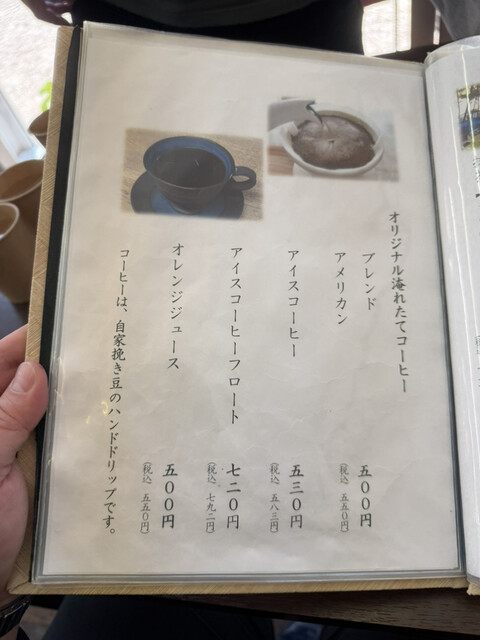 オリジナル淹れたてコーヒー
ブレンド
アメリカン
五〇〇円
(税込 五五〇円)
アイスコーヒー
五三〇円
(税込 五八三円)
アイスコーヒーフロート
七二〇円
(税込 七九二円)
オレンジジュース
五〇〇円
(税込 五五〇円)
コーヒーは、自家挽き豆のハンドドリップです。